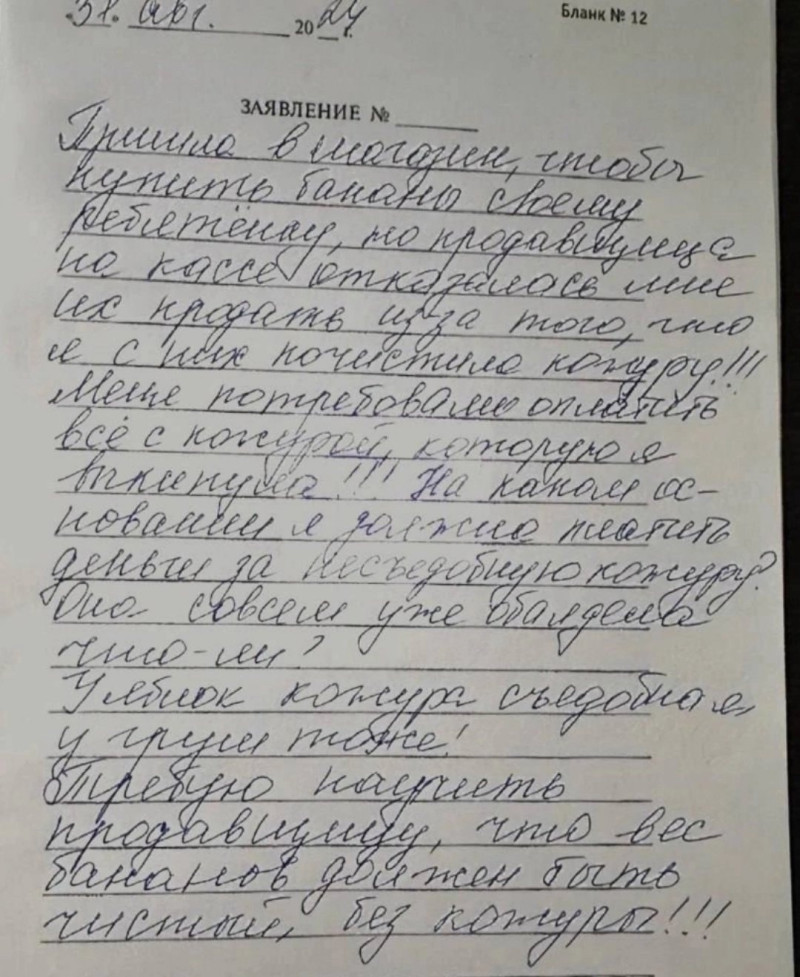 31. авг. 2024 г.
Бланк № 12
ЗАЯВЛЕНИЕ №
Пришла в магазин, чтобы
купить бананы своему
ребятёнку, но продавщица
на кассе отказалась мне
их продать из за того, что
я с них почистила кожуру!!!
Меня потребовали оплатить
всё с кожурой, которую я
выкинула!!! На каком ос-
новании я должна платить
деньги за несъедобную кожуру?
Она совсем уже обалдела
что-ли?
У яблок кожура съедобная,
у груш тоже!
Требую научить
продавщицу, что вес
бананов должен быть
чистый, без кожуры!!!